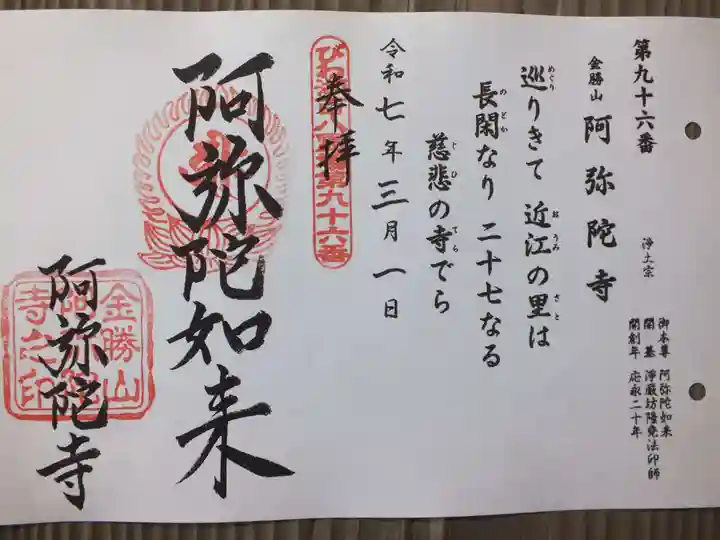 第九十六番
金勝山 阿弥陀寺
浄土宗
御本尊 阿弥陀如来
開基 浄厳坊隆堯法印師
開創年 応永二十年
巡りきて 近江の里は
めぐり おうみ さと
長閑なり 二十七なる
のどか
慈悲の寺でら
じひ てら
令和七年三月一日
奉拝
第九十六番
阿弥陀如来
阿弥陀寺
金勝山
寺之印